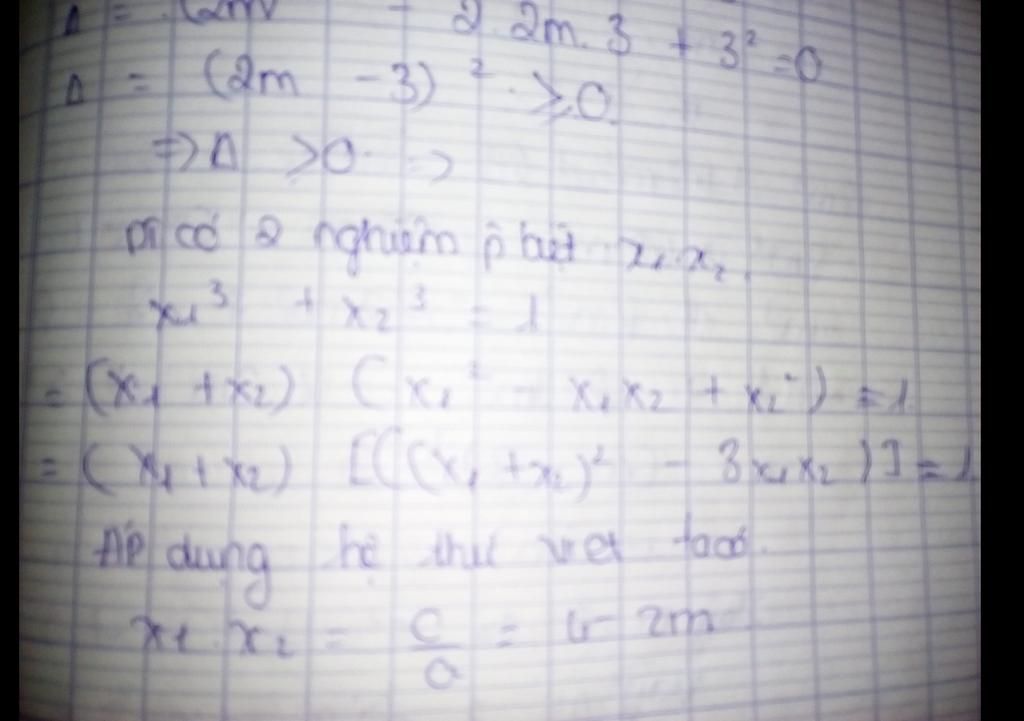 Δ = (2m - 2.2m.3 + 3² = 0
Δ = (2m - 3)² ≥ 0
⇒ Δ > 0 ⇒
có 2 nghiệm p biệt x₁ x₂
x₁³ + x₂³ = 1
= (x₁ + x₂) (x₁² - x₁x₂ + x₂²) = 1
= (x₁ + x₂) [((x₁ + x₂)² - 3x₁x₂)] = 1
Áp dụng hệ thư viet
x₁. x₂ = c/a = 2m